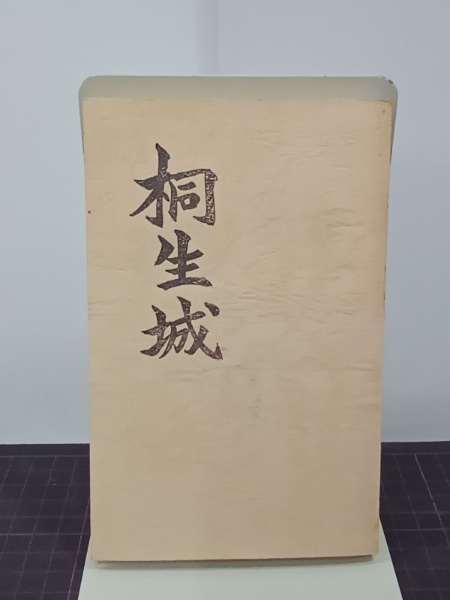 桐生城